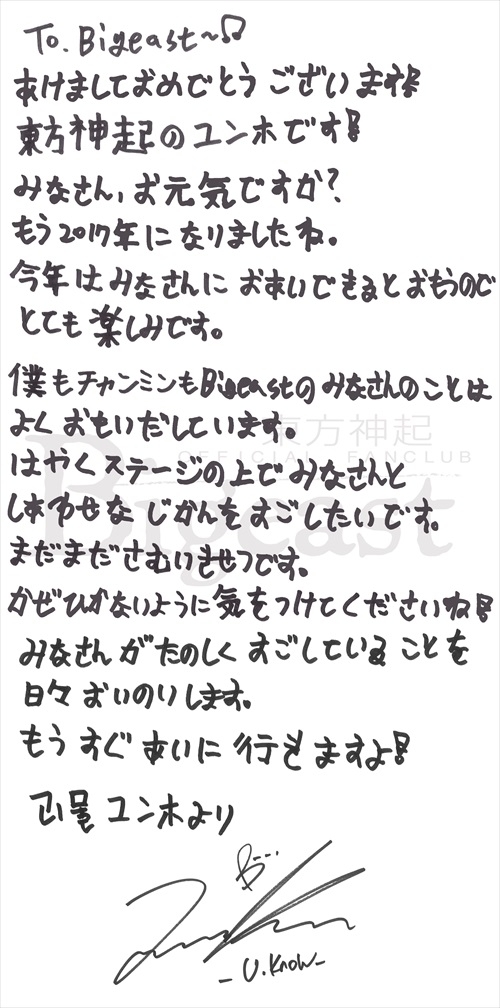 To. Bigeast~♫
あけましておめでとうございます!
東方神起のユンホです!
みなさん、お元気ですか?
もう2017年になりましたね。
今年はみなさんにおあいできるとおもうので
とても楽しみです。
僕もチャンミンもBigeastのみなさんのことは
よくおもいだしています。
東方神起
OFFICIAL FANCLUB
Bigeast
はやくステージの上でみなさんと
しあわせなじかんをすごしたいです。
まだまださむいきせつです。
かぜひかないように気をつけてくださいね!
みなさんがたのしくすごしていることを
日々おいのりします。
もうすぐあいに行きますよ!
ユンホより
- U.Know -